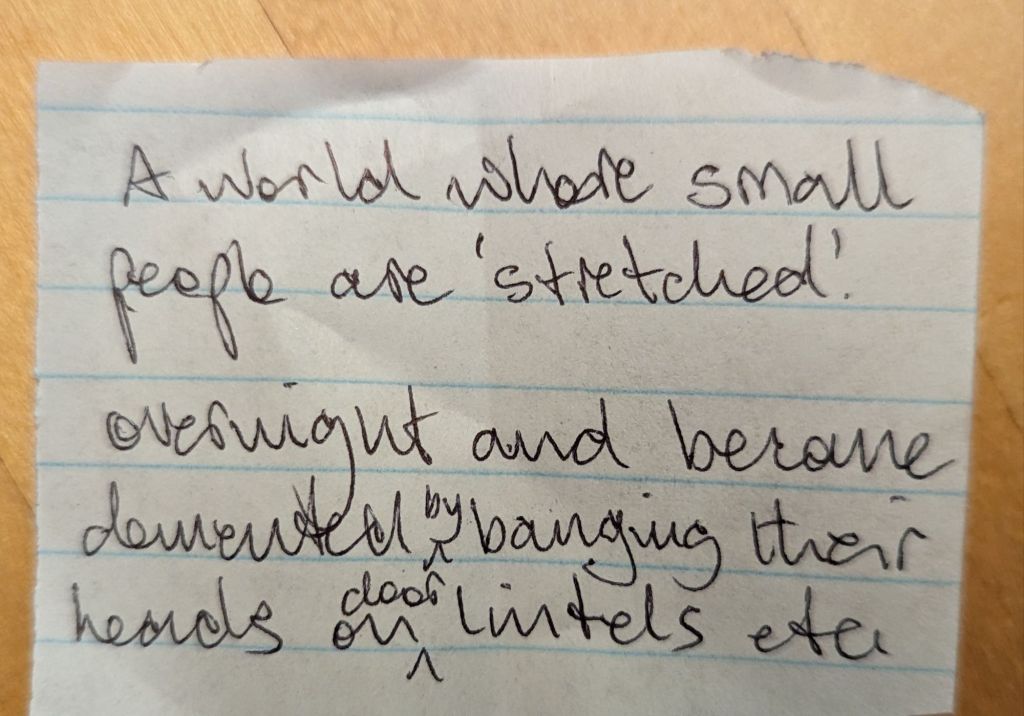 A world whose small
people are 'stretched'
overnight and become
demented by banging their
heads on door lintels etc.